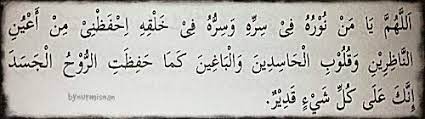 اَللّٰهُمَّ يَا مَنْ نُوْرُهُ فِيْ سِرِّهِ وَسِرُّهُ فِيْ خَلْقِهِ اِحْفَظْنِيْ مِنْ أَعْيُنِ
النَّاظِرِيْنَ وَقُلُوْبِ الْحَاسِدِيْنَ وَالْبَاغِيْنَ كَمَا حَفِظْتَ الرُّوْحَ الْجَسَدَ
إِنَّكَ عَلَى كُلِّ شَيْءٍ قَدِيْرٌ.
bynurmisnan